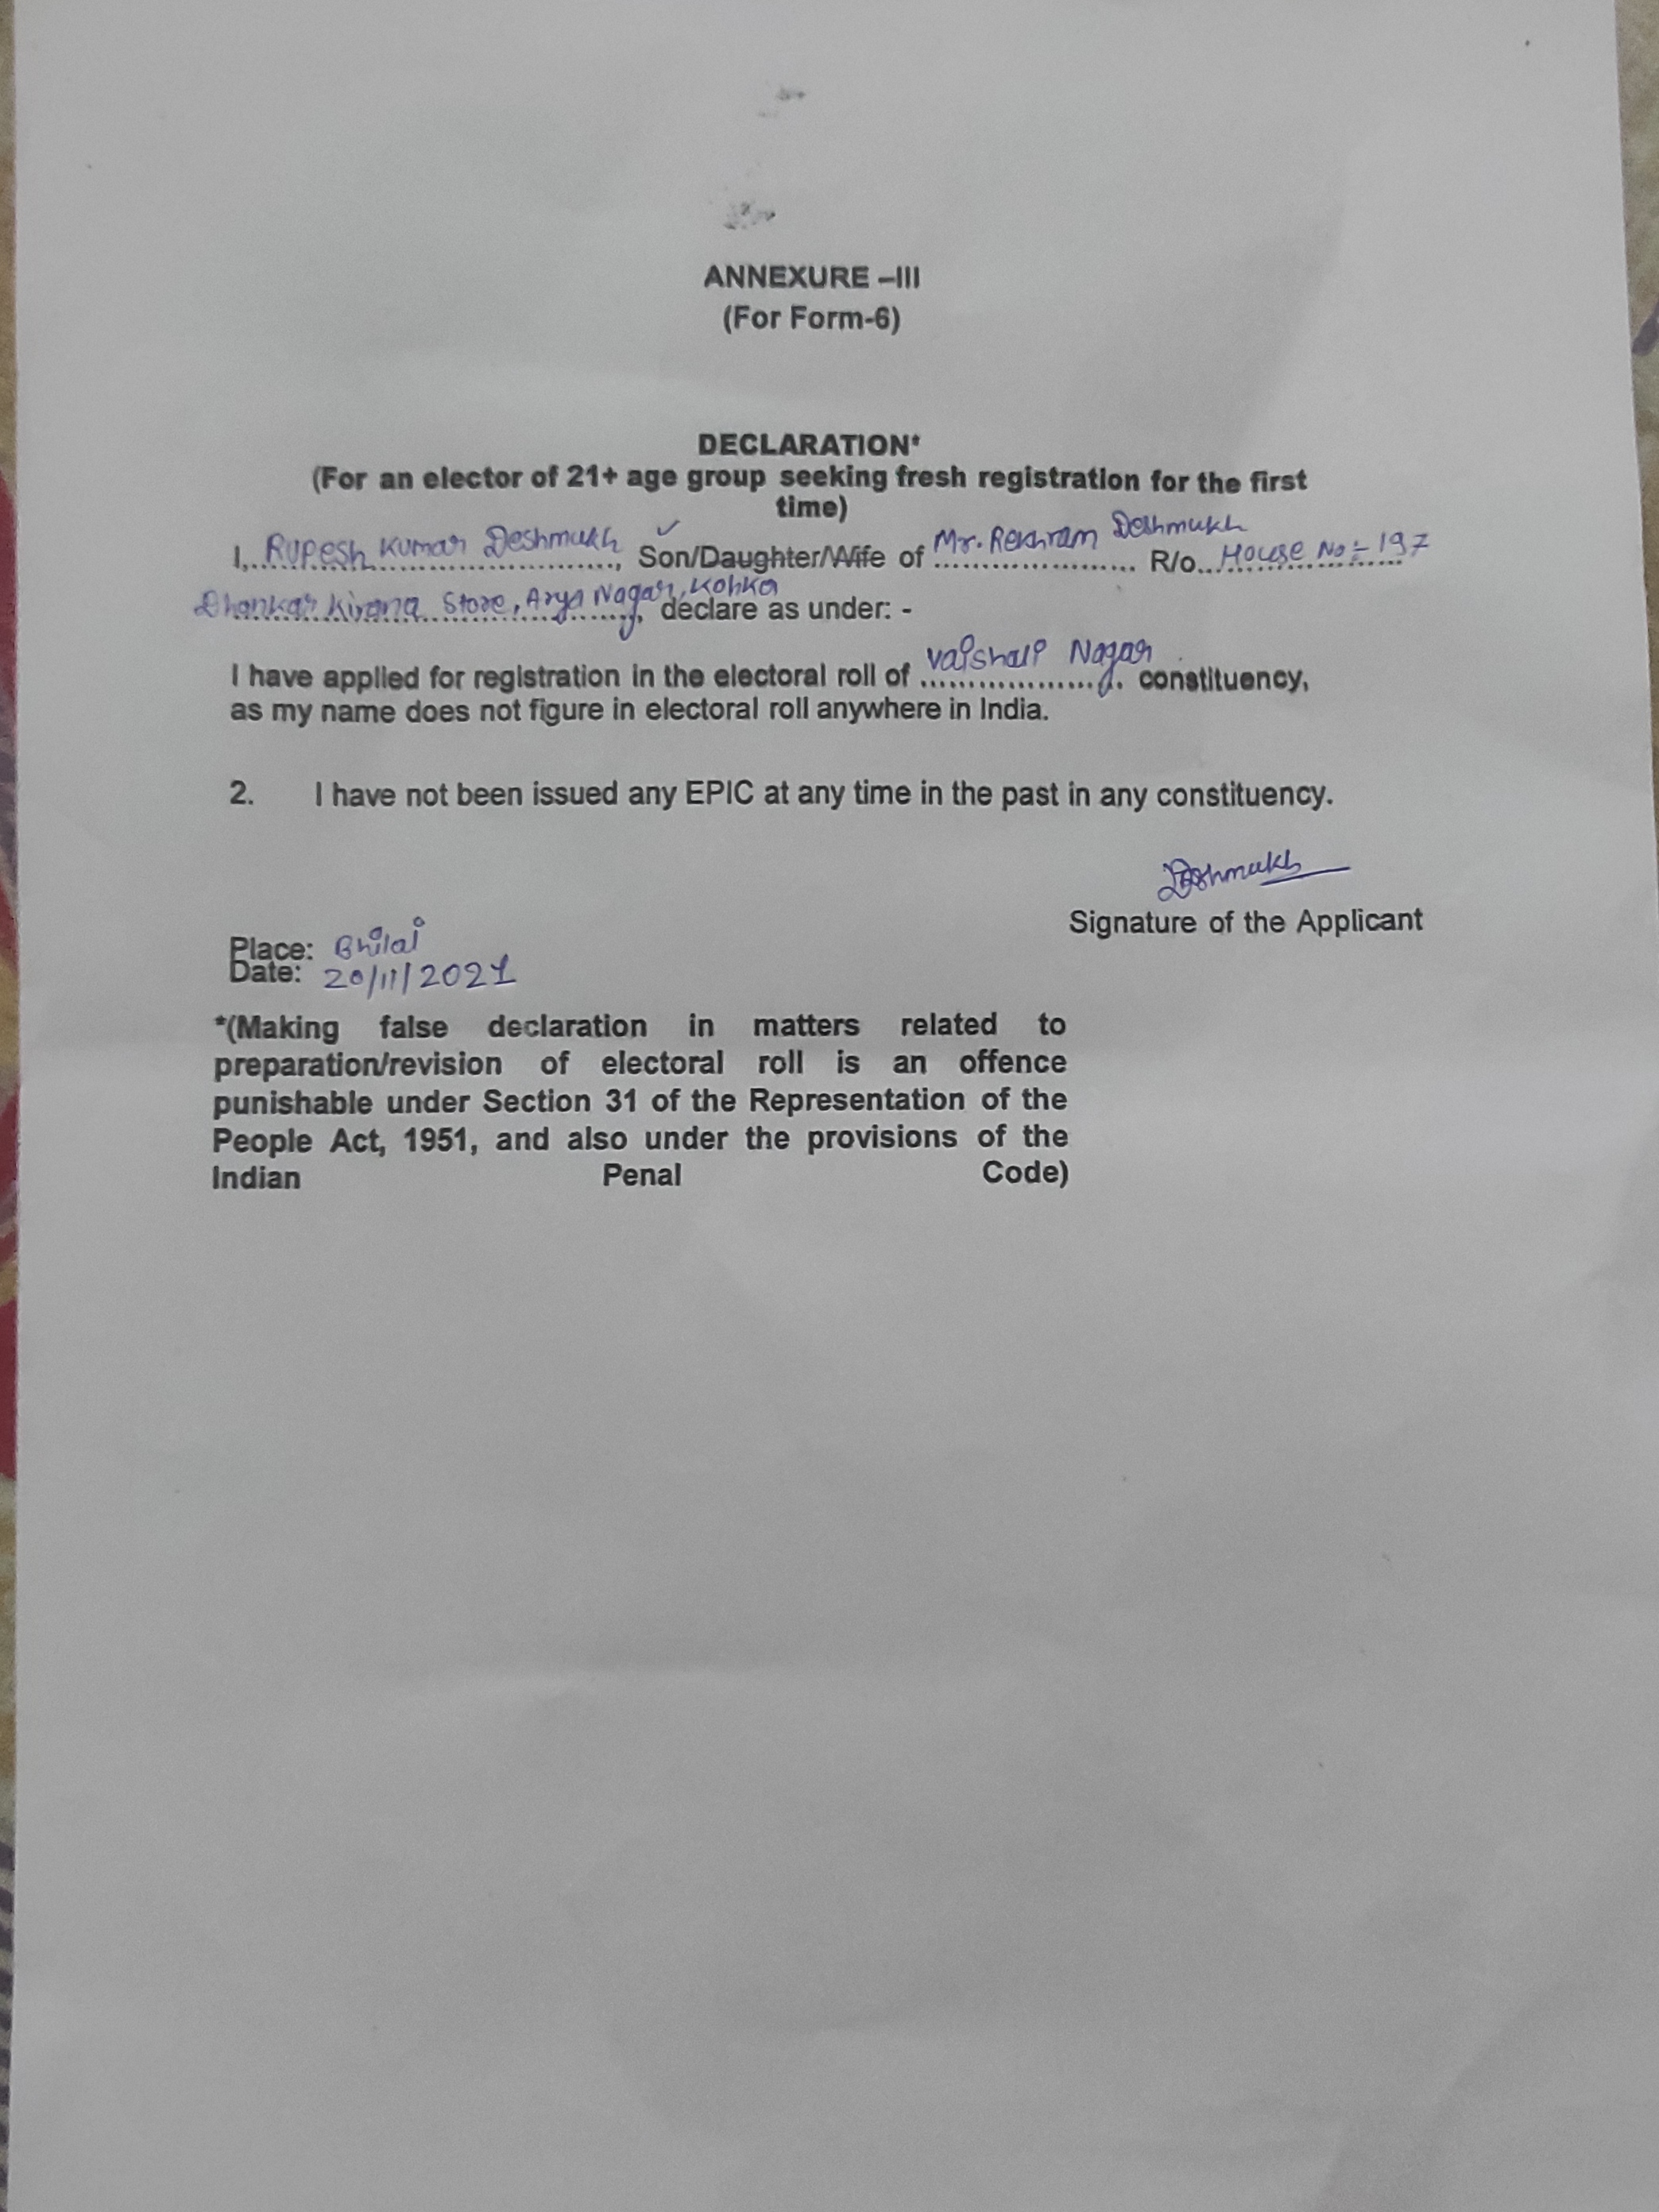 ANNEXURE –III
(For Form-6)
DECLARATION*
(For an elector of 21+ age group seeking fresh registration for the first
time)
I, Rupesh Kumar Deshmukh, Son/Daughter/Wife of Mr. Rekhram Deshmukh R/o House No:- 197
Dhankar Kirana Store, Arya Nagar, Kohka, declare as under: -
I have applied for registration in the electoral roll of Vaishali Nagar constituency,
as my name does not figure in electoral roll anywhere in India.
2. I have not been issued any EPIC at any time in the past in any constituency.
Deshmukh
Signature of the Applicant
Place: Bhilai
Date: 20/11/2021
*(Making false declaration in matters related to
preparation/revision of electoral roll is an offence
punishable under Section 31 of the Representation of the
People Act, 1951, and also under the provisions of the
Indian Penal Code)